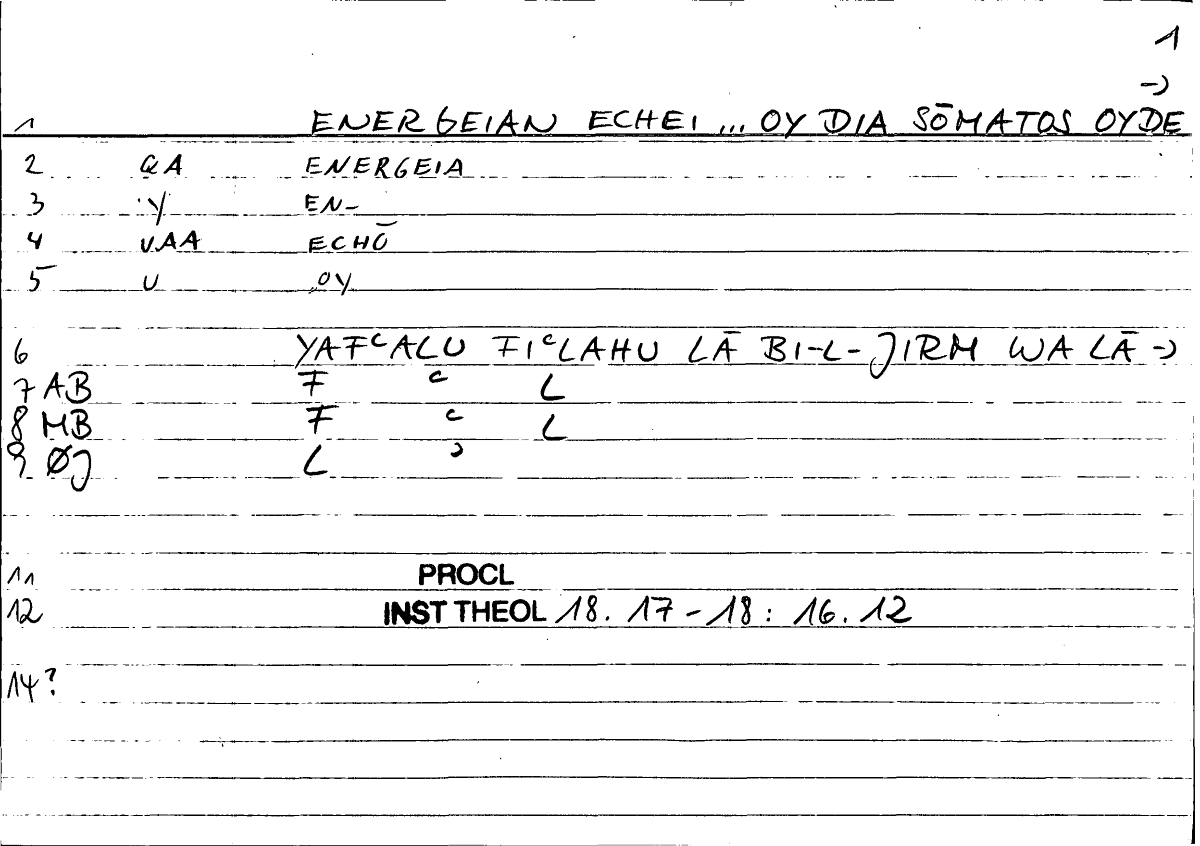 1
→
1 ENERGEIAN ECHEI ... OY DIA SŌMATOS OYDE
2 QA ENERGEIA
3 Y EN-
4 VAA ECHŌ
5 U OY
6 YAFᶜALU FIᶜLAHU LĀ BI-L-JIRM WA LĀ →
7 AB F ᶜ L
8 MB F ᶜ L
9 ØJ L ʾ
11 PROCL
12 INST THEOL 18. 17-18: 16. 12
14?